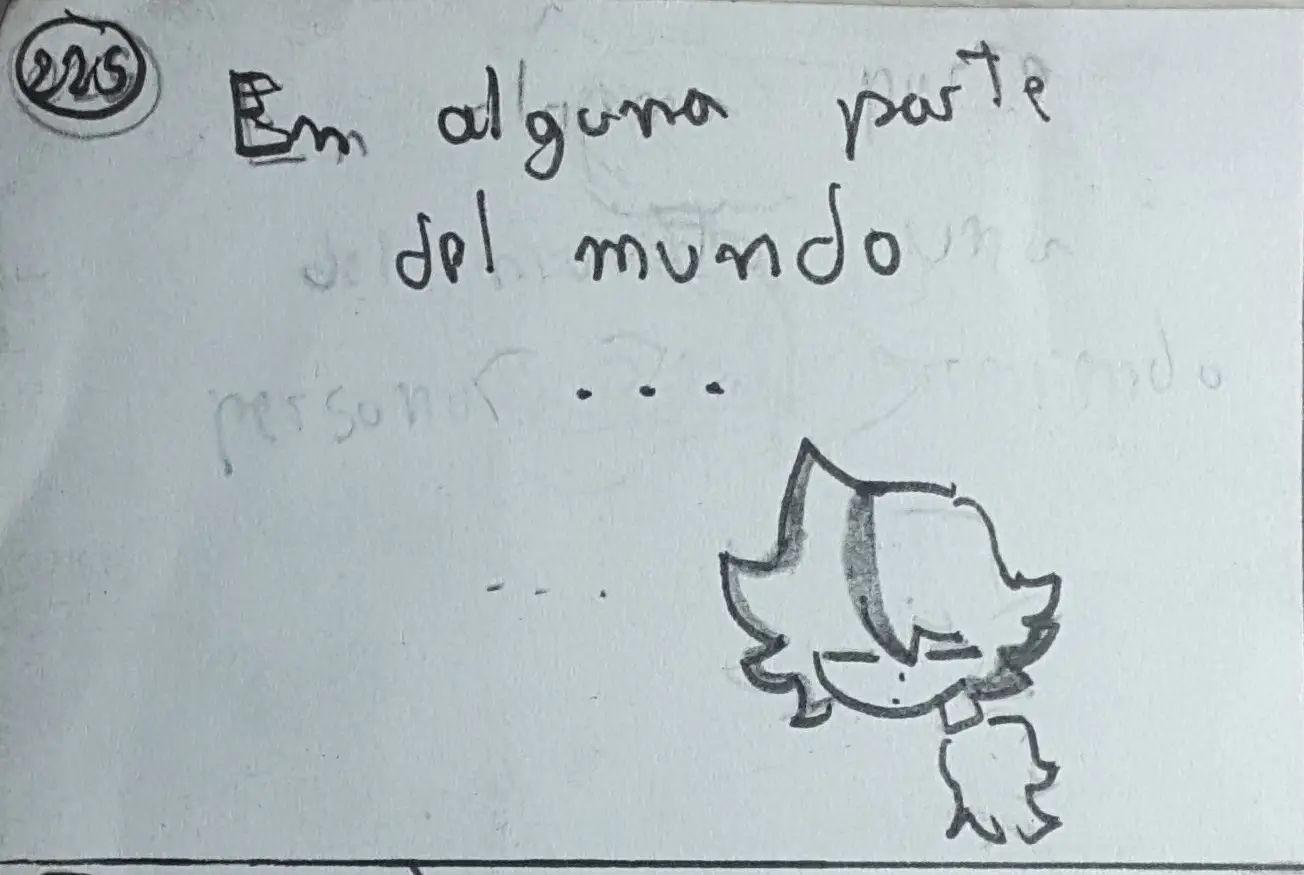 225
En alguna parte
del mundo
...
...